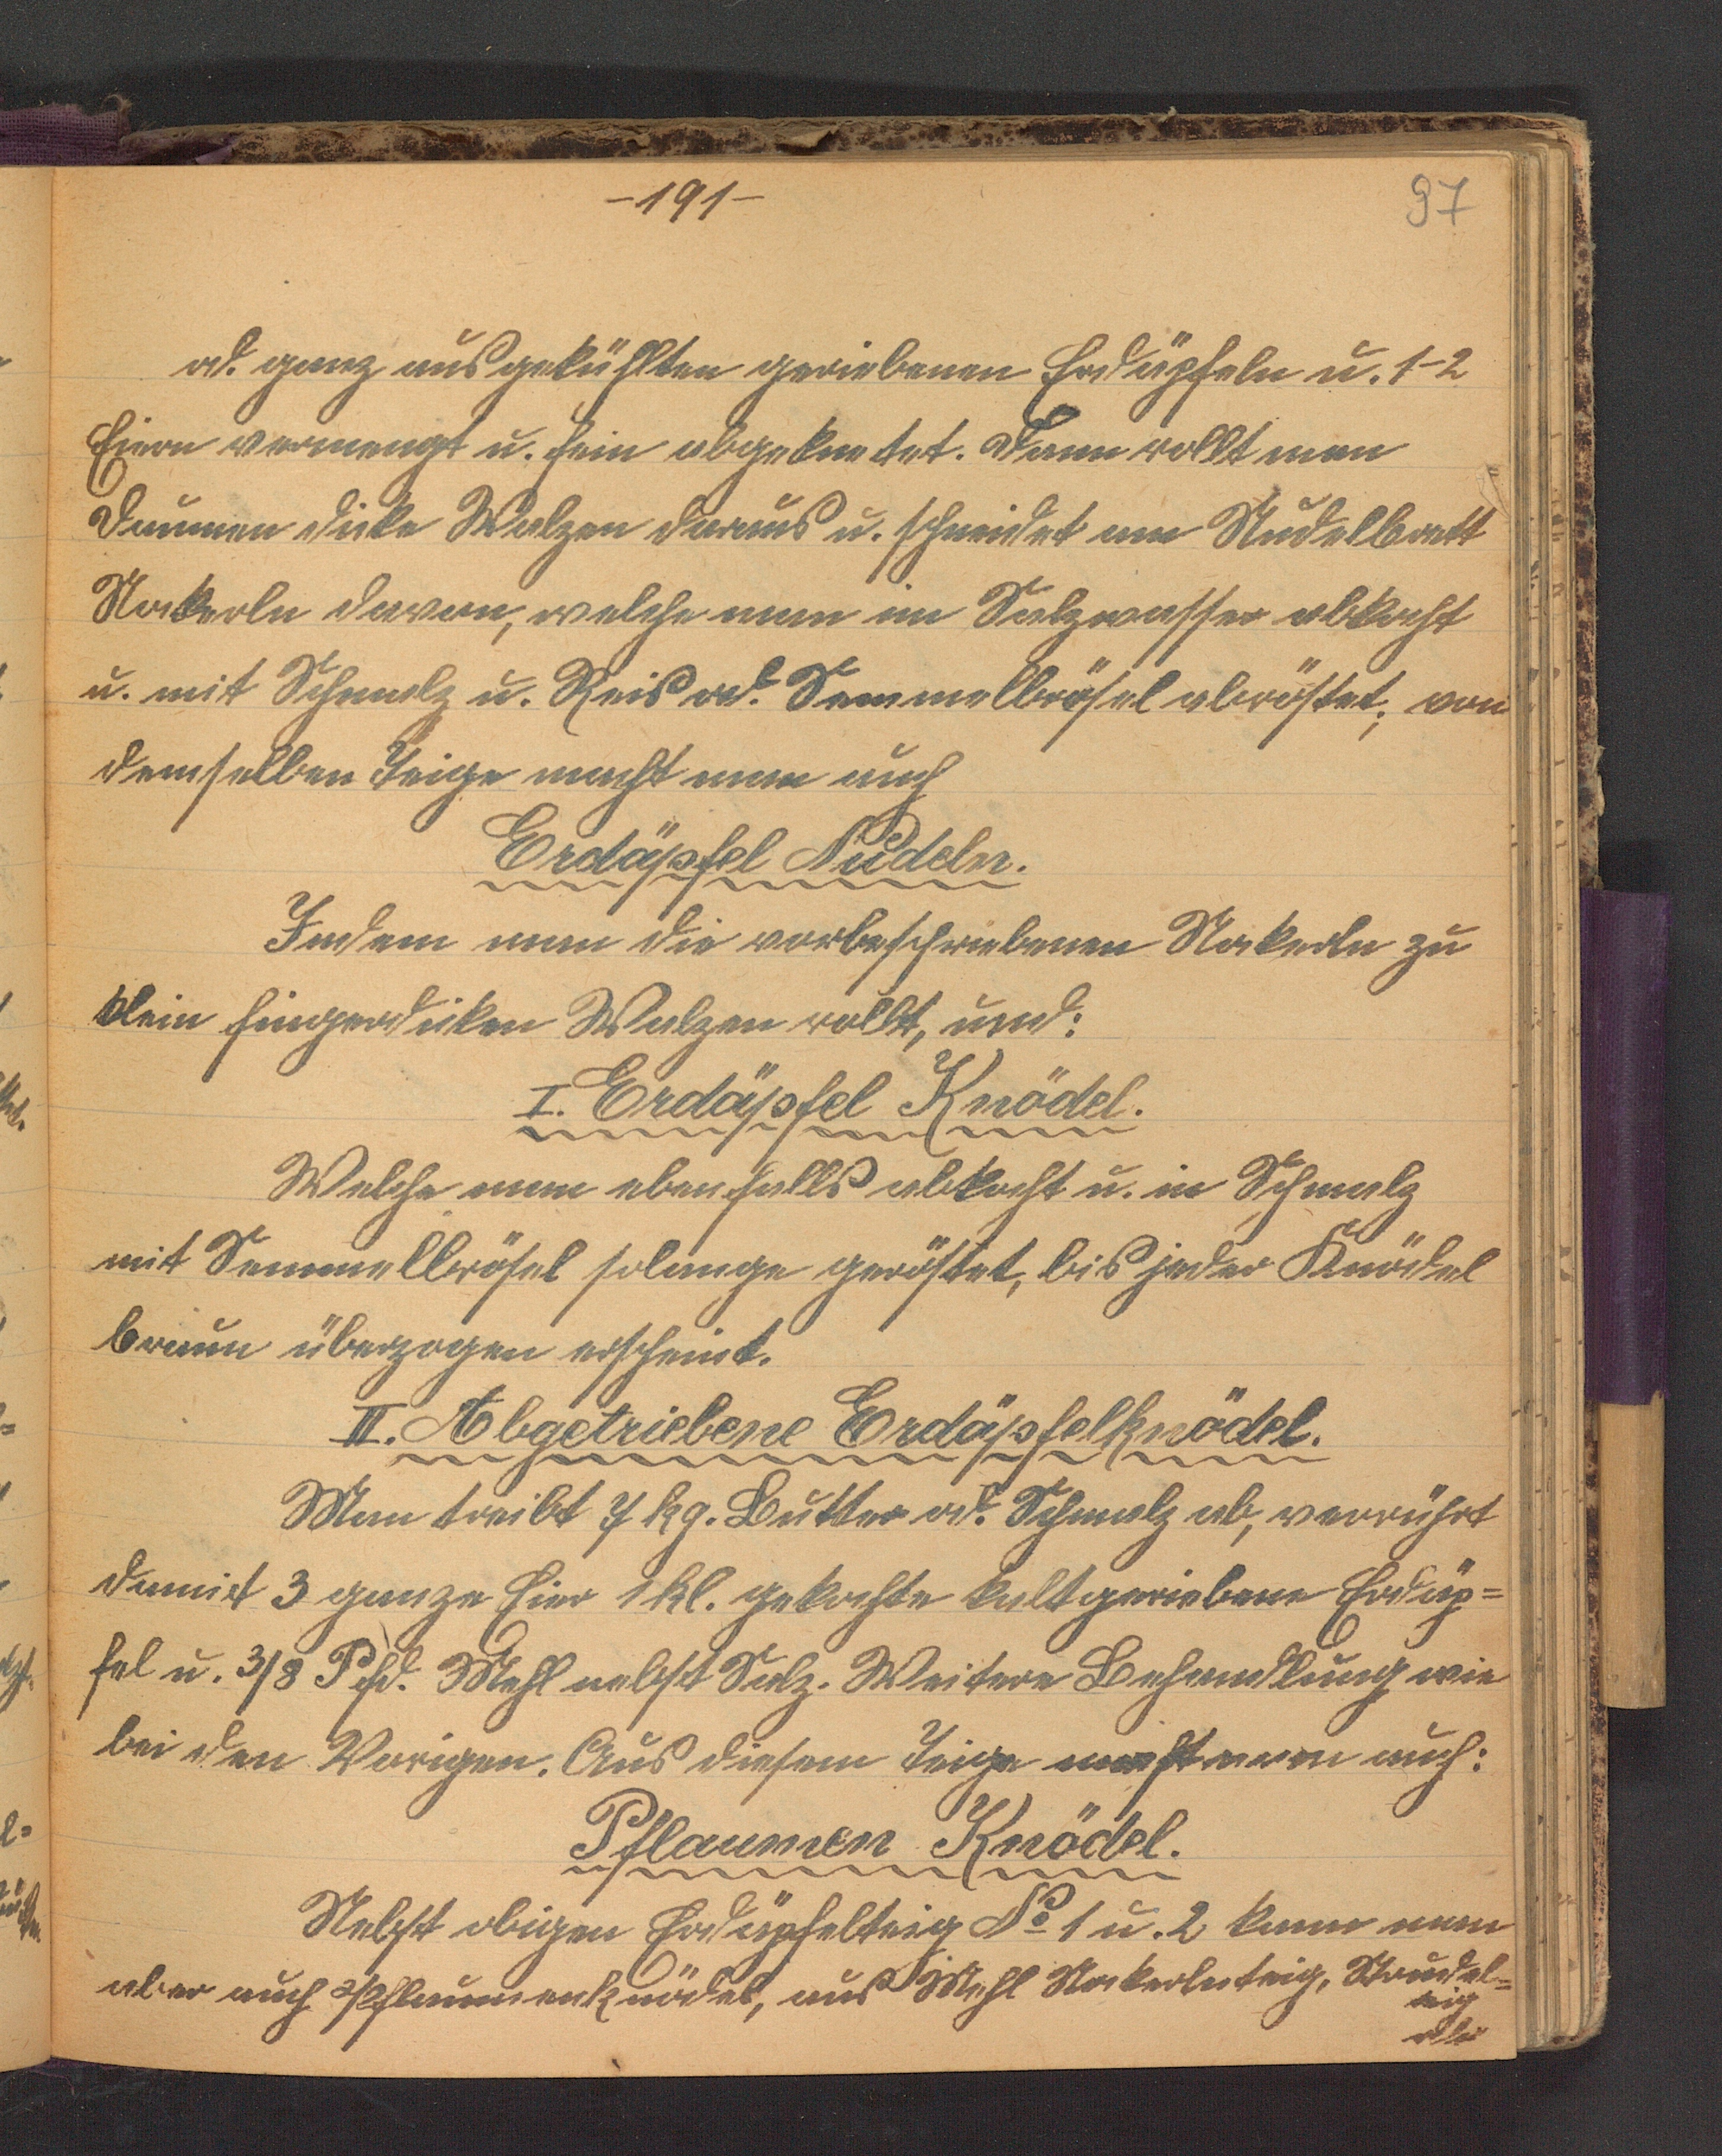 -191-
97
od. ganz ausgekühlten geriebenen Erdäpfeln u. 1-2
Eiern vermengt u. fein abgeknetet. Dann rollt man
Daumen dicke Walzen daraus u. schneidet am Nudelbrett
Nockerln davon, welche man im Salzwasser abkocht
u. mit Schmalz u. Reis od. Semmelbrösel abröstet; von
demselben Teige macht man auch
Erdäpfel Nudeln.
Indem man die vorbeschriebenen Nockerln zu
klein fingerdicken Walzen rollt, und:
I. Erdäpfel Knödel.
Welche man ebenfalls abkocht u. in Schmalz
mit Semmelbrösel solange geröstet, bis jeder Knödel
braun überzogen erscheint.
II. Abgetriebene Erdäpfelknödel.
Man treibt 7 kg. Butter od. Schmalz ab, verrührt
damit 3 ganze Eier 1 kl. gekochte kaltgeriebene Erdäp=
fel u. 3/8 Pfd. Mehl nebst Salz. Weitere Behandlung wie
bei den Vorigen. Aus diesem Teige macht man auch:
Pflaumen Knödel.
Nebst obigen Erdäpfelteig No 1 u. 2 kann man
aber auch Pflaumenknödel, aus Mehl Nockerlnteig, Strudel=
teig